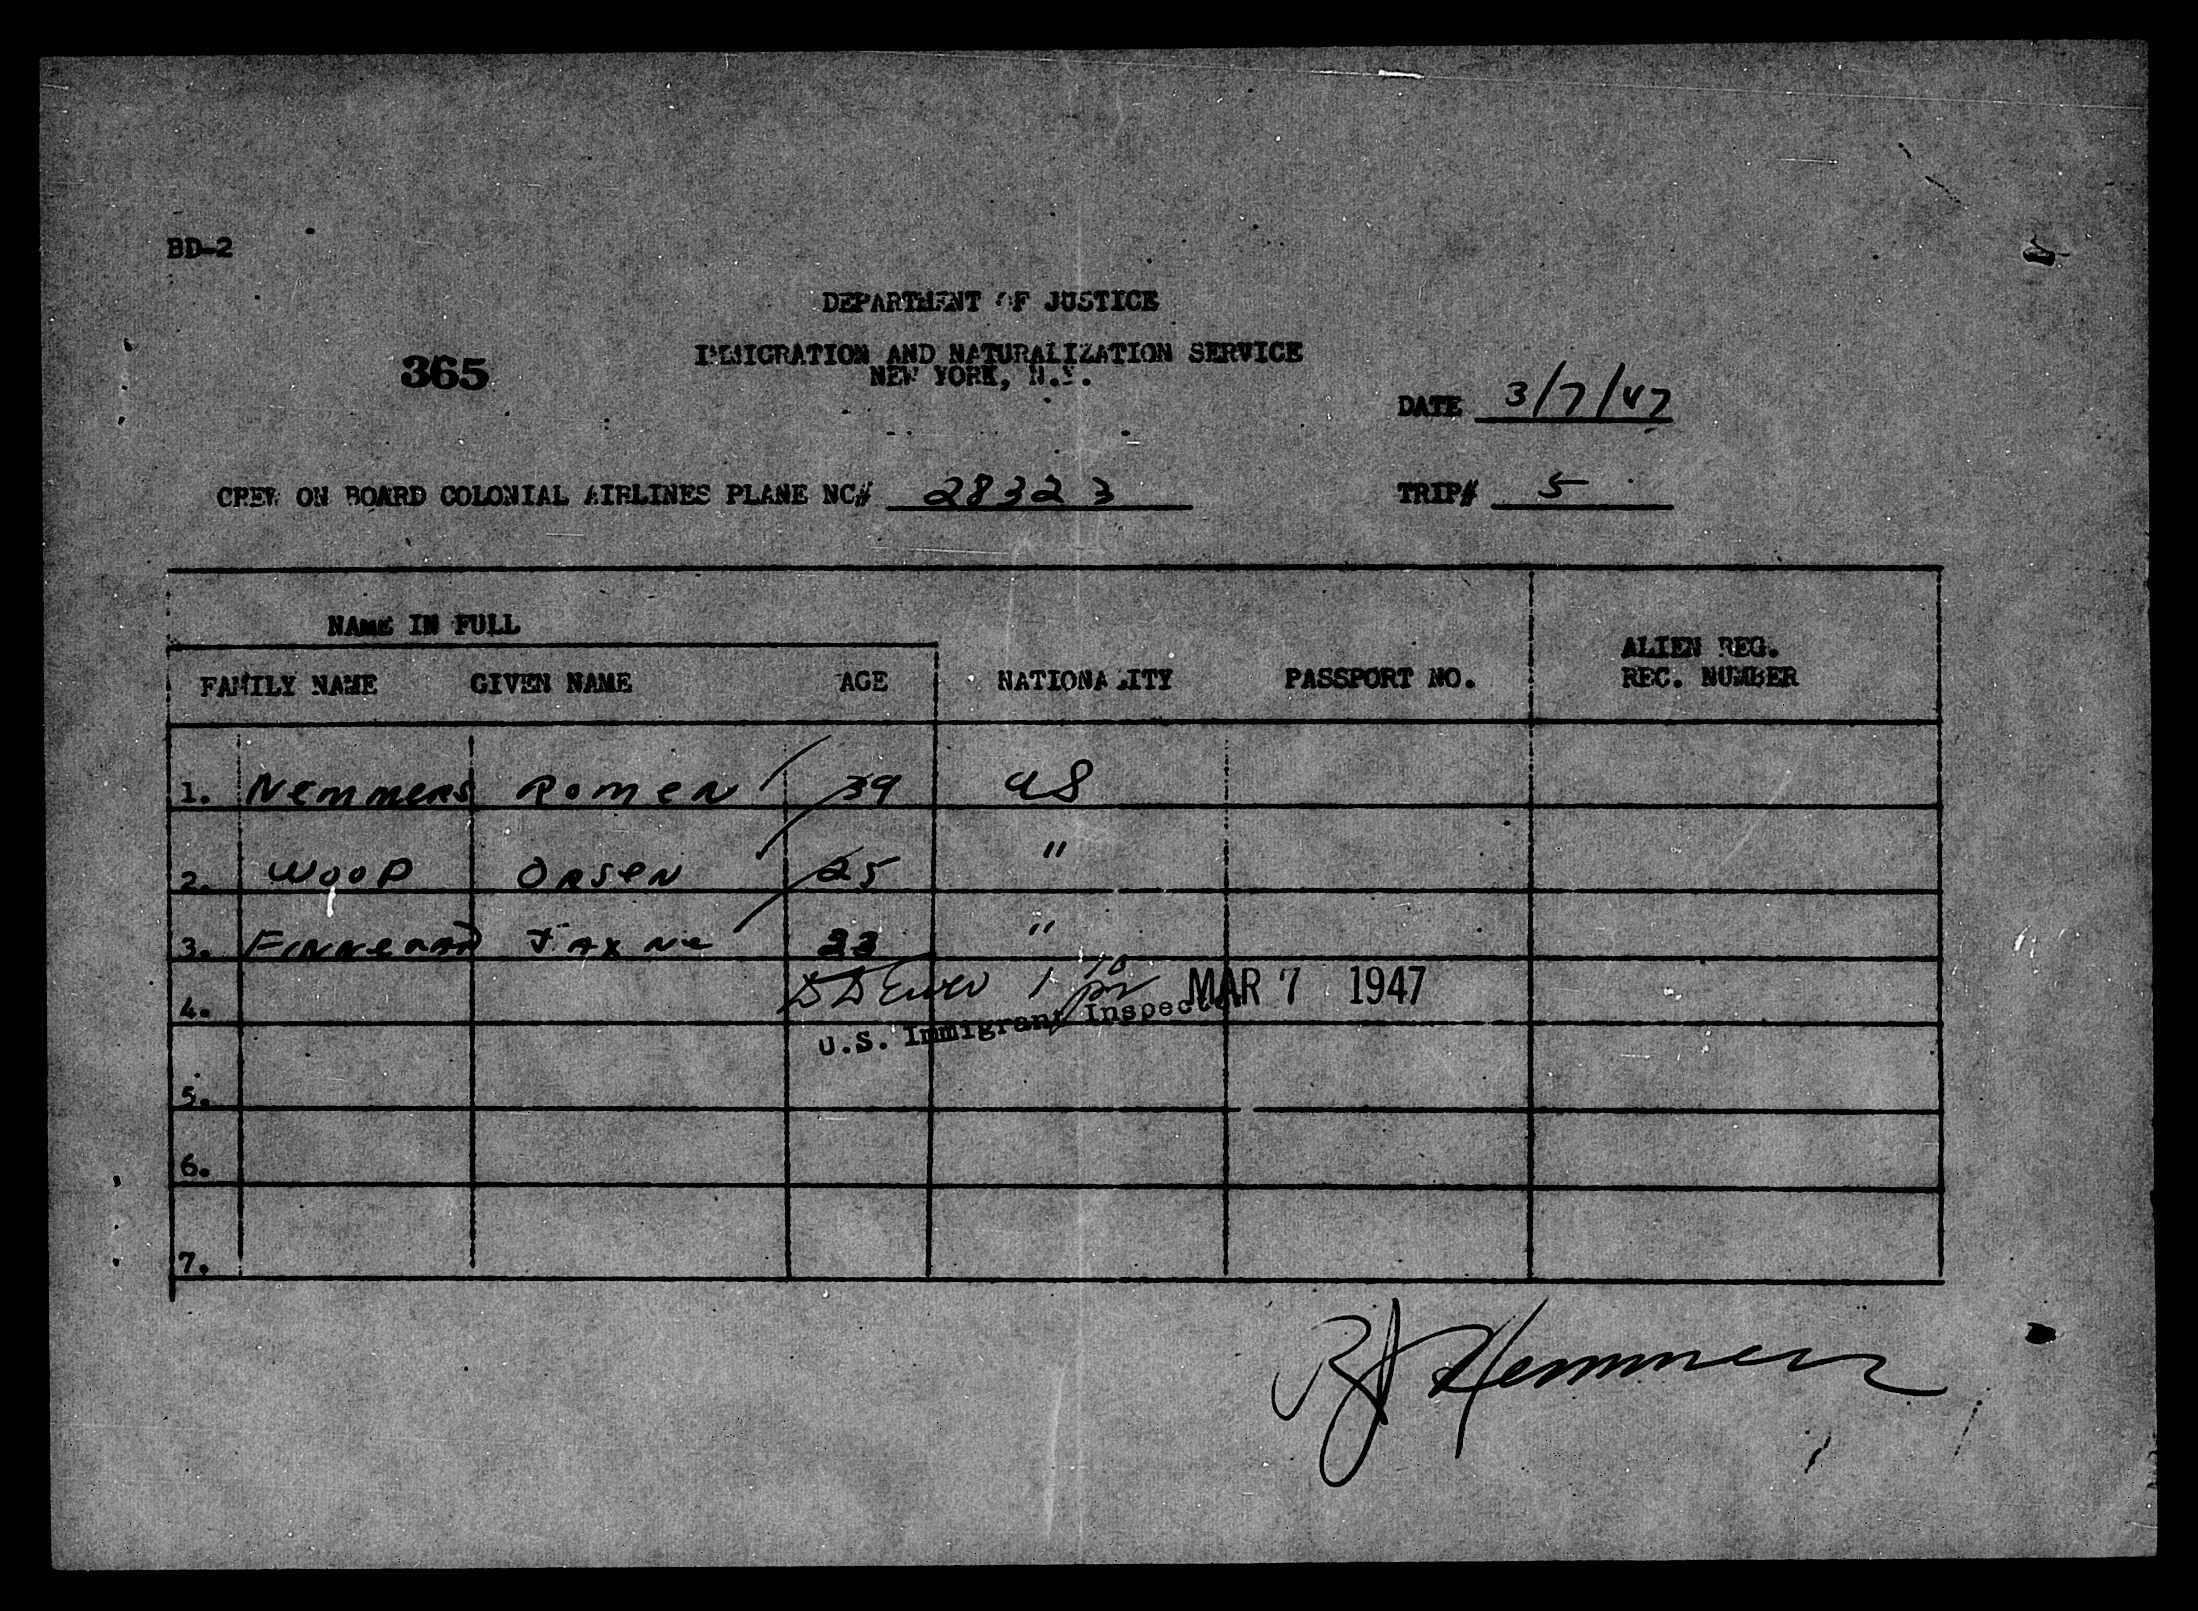 BD-2
DEPARTMENT OF JUSTICE
365
IMMIGRATION AND NATURALIZATION SERVICE
NEW YORK, N.Y.
DATE 3/7/47
CREW ON BOARD COLONIAL AIRLINES PLANE NC# 28323 TRIP# 5
NAME IN FULL
ALIEN REG.
FAMILY NAME GIVEN NAME AGE NATIONALITY PASSPORT NO. REC. NUMBER
1. Nemmers Romen 39 US
2. Wood Orsen 25 "
3. 23 "
MAR 7 1947
4.
U.S. Immigrant Inspector
5.
6.
7.